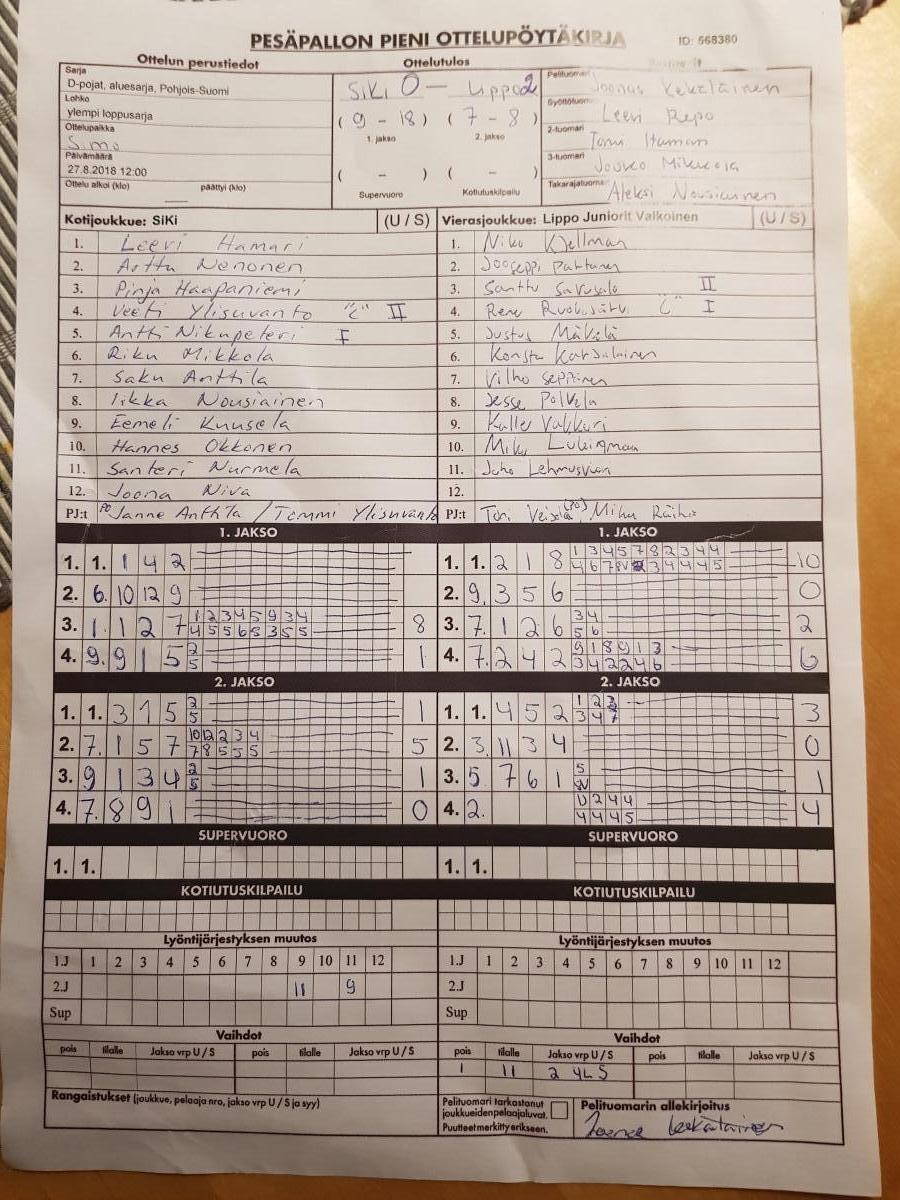 PESÄPALLON PIENI OTTELUPÖYTÄKIRJA ID: 568380
Ottelun perustiedot
Ottelutulos
Sarja
D-pojat, aluesarja, Pohjois-Suomi
Lohko
ylempi loppusarja
Ottelupaikka
Simo
Päivämäärä
27.8.2018 12:00
Ottelu alkoi (klo) päättyi (klo)
SiKi 0 — Lippo 2
( 9 - 18 ) ( 7 - 8 )
1. jakso 2. jakso
( - ) ( - )
Supervuoro Kotiutuskilpailu
Pelituomari
Joonas Kekäläinen
Syöttötuom
Leevi Repo
2-tuomari
Tomi
3-tuomari
Jouko Mikkola
Takarajatuoma
Aleksi Nousiainen
Kotijoukkue: SiKi (U / S)
1. Leevi Hamari
2. Arttu Nenonen
3. Pinja Haapaniemi
4. Veeti Ylisuvanto "C" II
5. Antti Nikupeteri I
6. Riku Mikkola
7. Saku Anttila
8. Iikka Nousiainen
9. Eemeli Kuusela
10. Hannes Okkonen
11. Santeri Nurmela
12. Joona Niva
PJ:t PO Janne Anttila / Tommi Ylisuvanto
Vierasjoukkue: Lippo Juniorit Valkoinen (U / S)
1. Niko Kjellman
2. Jooseppi Pahtanen
3. Santtu Savusalo II
4. "C" I
5. Justus Mäkelä
6. Konsta Karjalainen
7. Vilho Seppänen
8. Jesse Polvela
9. Kalle Vakkuri
10.
11. Juho
12.
PJ:t (PO) Räihä
1. JAKSO
1. 1. 1 4 2
2. 6. 10 12 9
3. 1. 1 2 7 1 2 3 4 5 9 3 4 8
4 5 5 6 5 3 5 5
4. 9. 9 1 5 2 1
5
2. JAKSO
1. 1. 3 1 5 2 1
5
2. 7. 1 5 7 10 12 2 3 4 5
7 8 5 5 5
3. 9 1 3 4 2 1
5
4. 7. 8 9 1 0
SUPERVUORO
1. 1.
KOTIUTUSKILPAILU
1. JAKSO
1. 1. 2 1 8 1 3 4 5 7 8 2 3 4 4 10
2. 9. 3 5 6 0
3. 7. 1 2 6 3 4 2
5 6
4. 7. 2 4 2 9 1 8 9 1 3 6
3 4 2 2 4 6
2. JAKSO
1. 1. 4 5 2 1 2 3
3 4
2. 3. 11 3 4 0
3. 5 7 6 1 5 1
4. 2. 2 4 4 4
4 4 4 5
SUPERVUORO
1. 1.
KOTIUTUSKILPAILU
Lyöntijärjestyksen muutos
1.J 1 2 3 4 5 6 7 8 9 10 11 12
2.J 11 9
Sup
Vaihdot
pois tilalle Jakso vrp U / S pois tilalle Jakso vrp U / S
Lyöntijärjestyksen muutos
1.J 1 2 3 4 5 6 7 8 9 10 11 12
2.J
Sup
Vaihdot
pois tilalle Jakso vrp U / S pois tilalle Jakso vrp U / S
1 11 2 4L S
Rangaistukset (joukkue, pelaaja nro, jakso vrp U / S ja syy)
Pelituomari tarkastanut
joukkueiden pelaajaluvat.
Puutteet merkitty erikseen.
Pelituomarin allekirjoitus
Joonas Kekäläinen